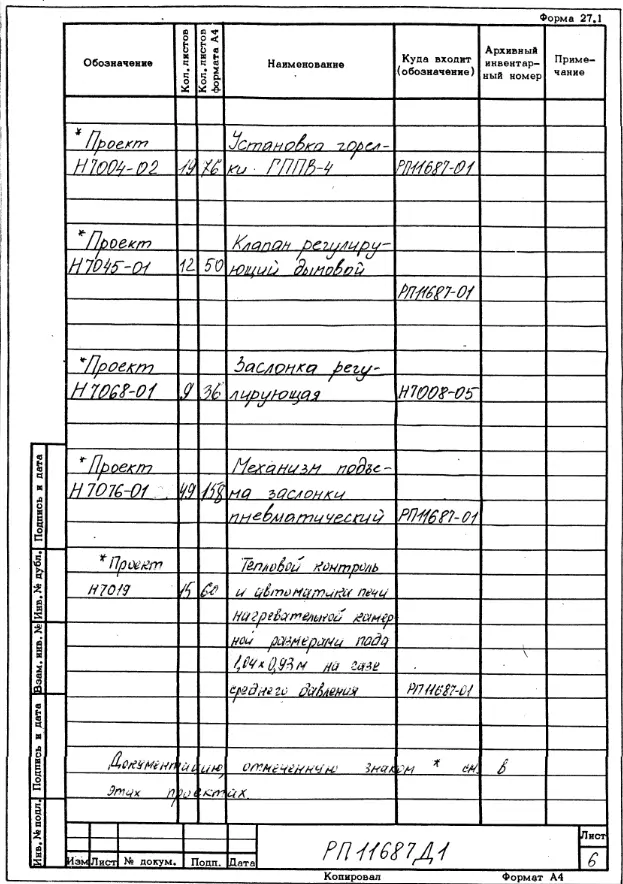 Форма 27.1
Обозначение Кол. листов Кол. листов формата А4 Наименование Куда входит (обозначение) Архивный инвентарный номер Примечание
* Проект Установка горел-
Н7004-02 19 76 ки ГППВ-4 РП11687-01
* Проект Клапан регулиру-
Н7045-01 12 50 ющий дымовой
РП11687-01
* Проект Заслонка регу-
Н7068-01 9 36 лирующая Н7008-05
* Проект Механизм подъе-
Н7076-01 49 158 ма заслонки
пневматический РП11687-01
* Проект Тепловой контроль
Н7019 15 60 и автоматика печи
нагревательной камер
ной размерами пода
1,04х0,93м на газе
среднего давления РП11687-01
Документацию, отмеченную знаком * см. в
этих проектах.
Инв. № подл. Подпись и дата Взам. инв. № Инв. № дубл. Подпись и дата
Изм Лист № докум. Подп. Дата
РП11687Д1
Лист
6
Копировал Формат А4